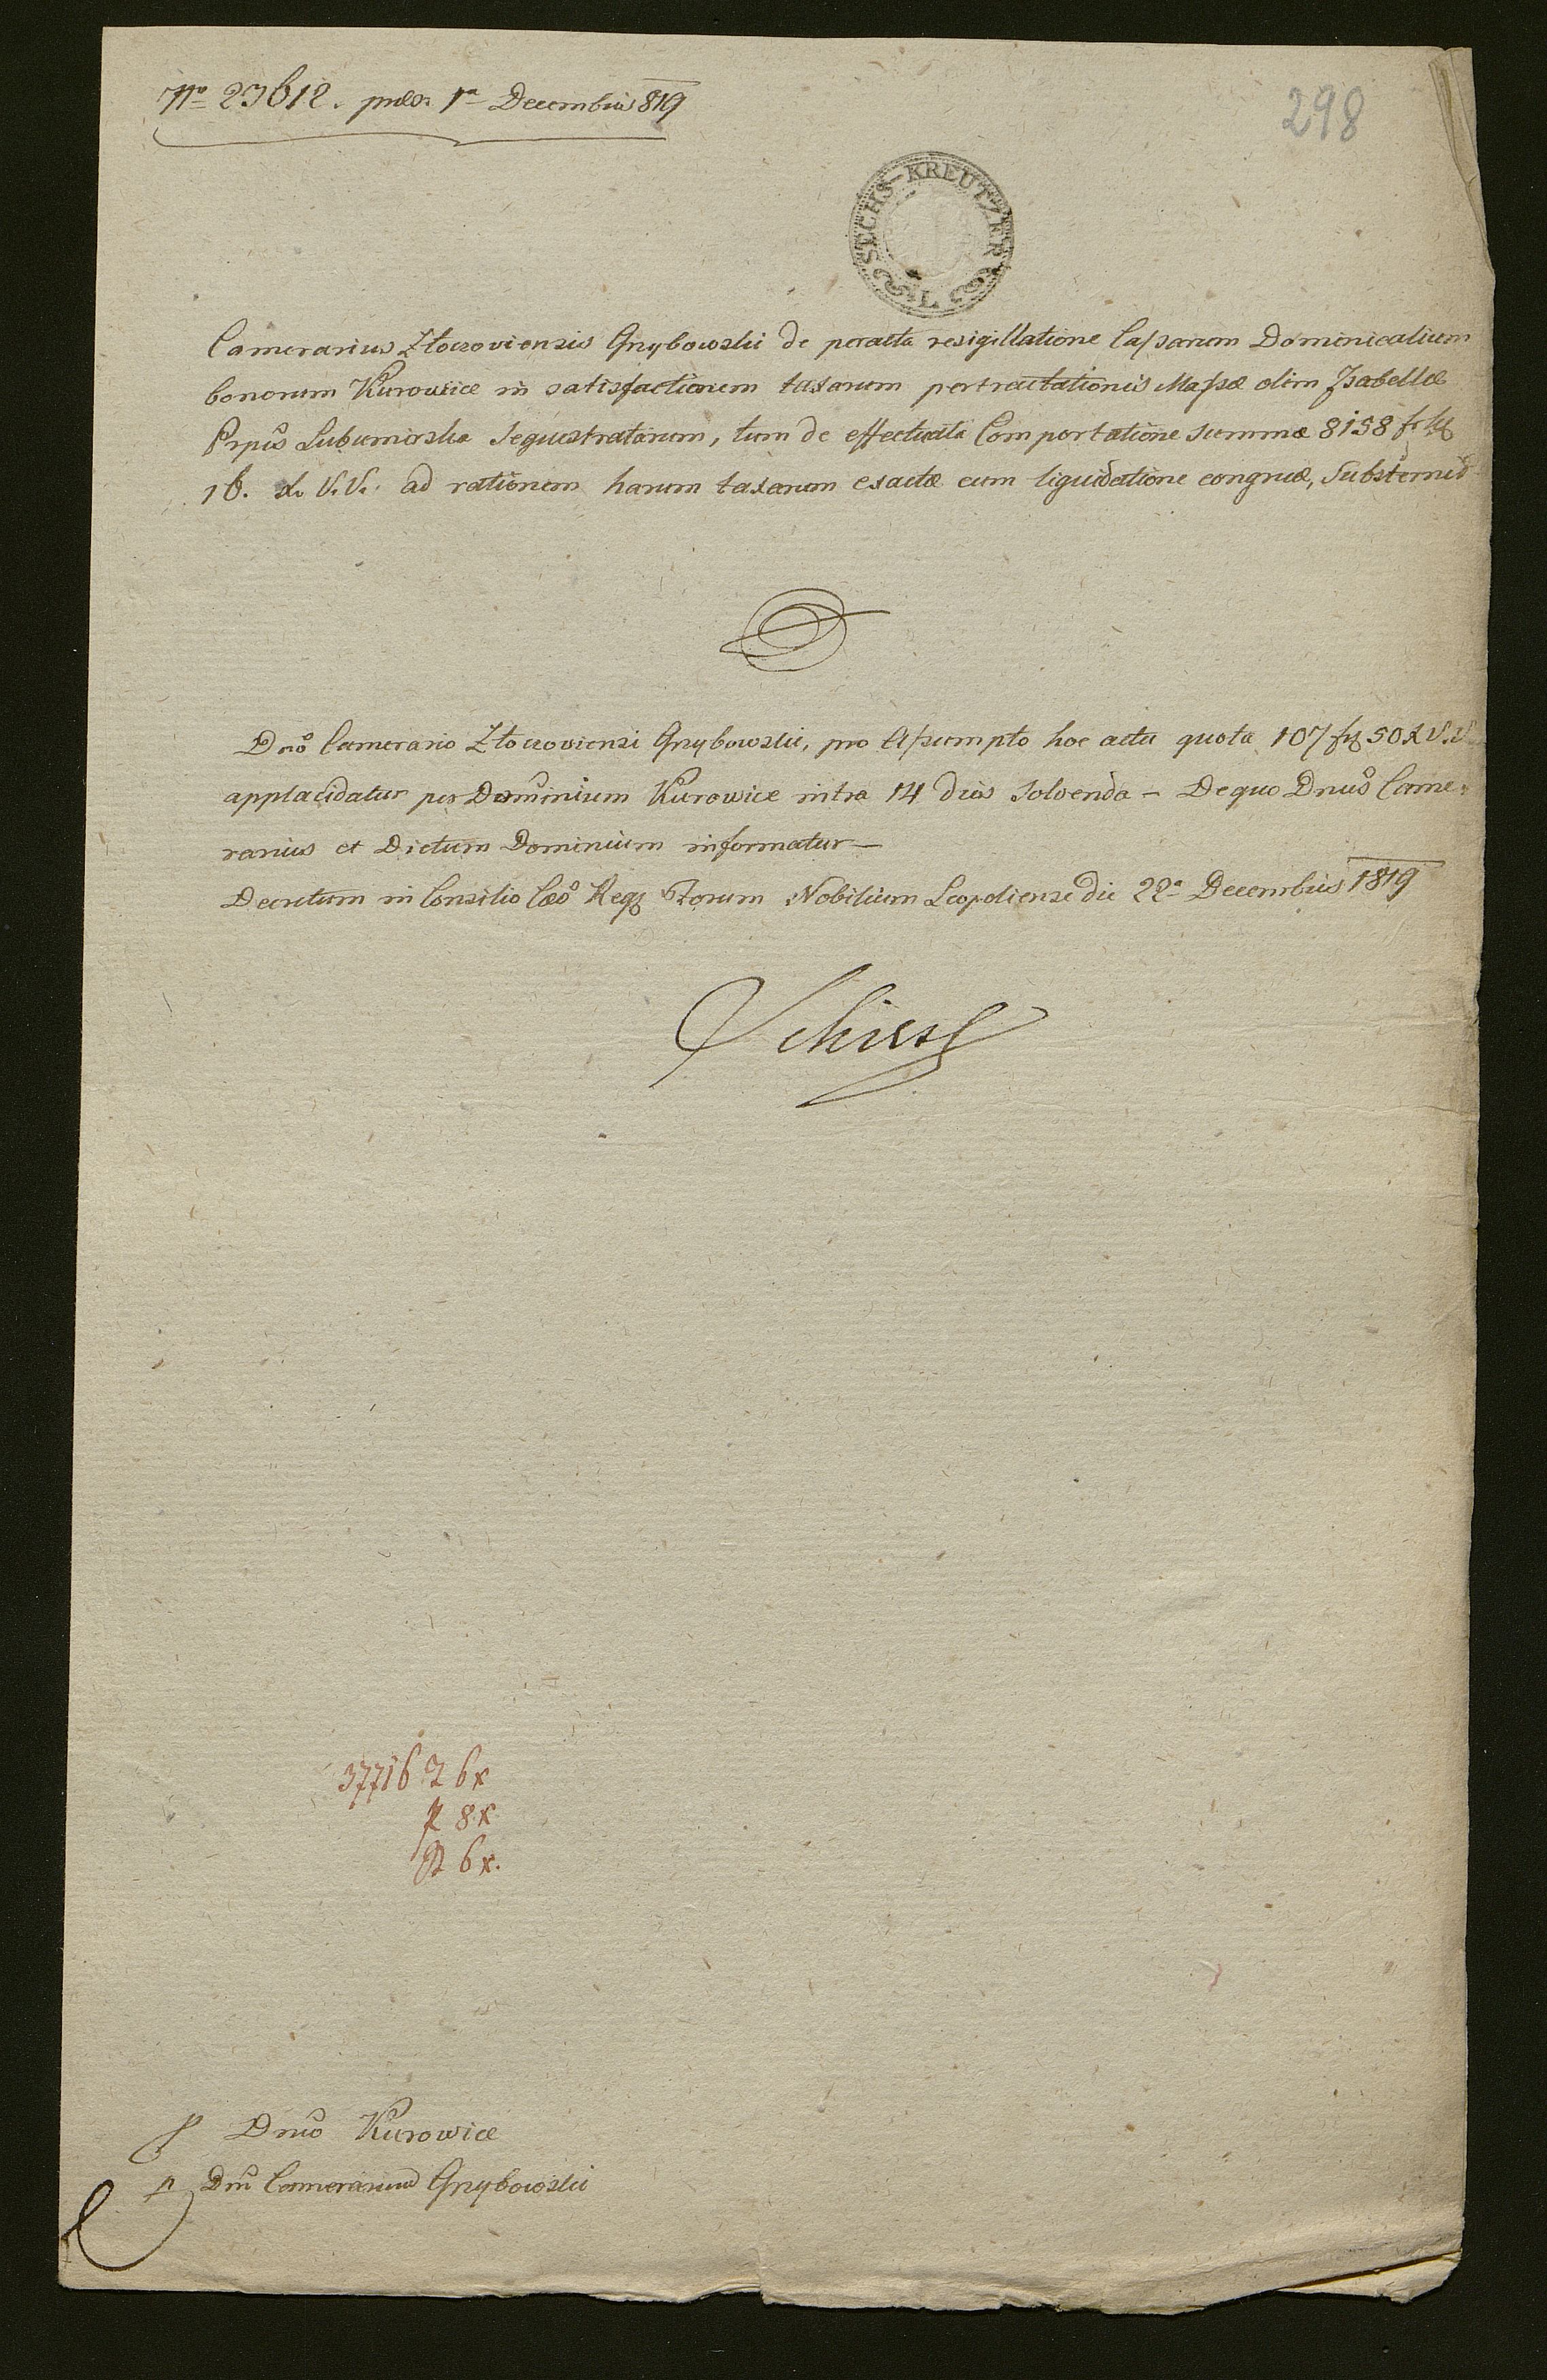 Nro 23612. præs: 1a Decembris 819
298
SECHS-KREUTZER
L.
Camerarius Złoczoviensis Grzybowski de peracta resigillatione Cassarum Dominicalium
bonorum Kurowice in satisfactionem taxarum pertractationis Massæ olim Isabellæ
Prpis Lubomirska Sequestratarum, tum de effectuata Comportatione summæ 8158 fr
16. x V.V. ad rationem harum taxarum exactæ cum liquidatione congruæ, Substernid
Dno Camerario Złoczoviensi Grzybowski, pro Assumpto hoc actu quota 107 fr 50 x V.V
applacidatur per Dominium Kurowice intra 14 dies solvenda - De quo Dnus Came=
rarius et Dictum Dominium informatur —
Decretum in Consilio Cæo Reg Fforum Nobilium Leopoliensi die 22a Decembris 1819
37716 6x
8x
6x.
Dnio Kurowice
Dnu Camerarium Grzybowski